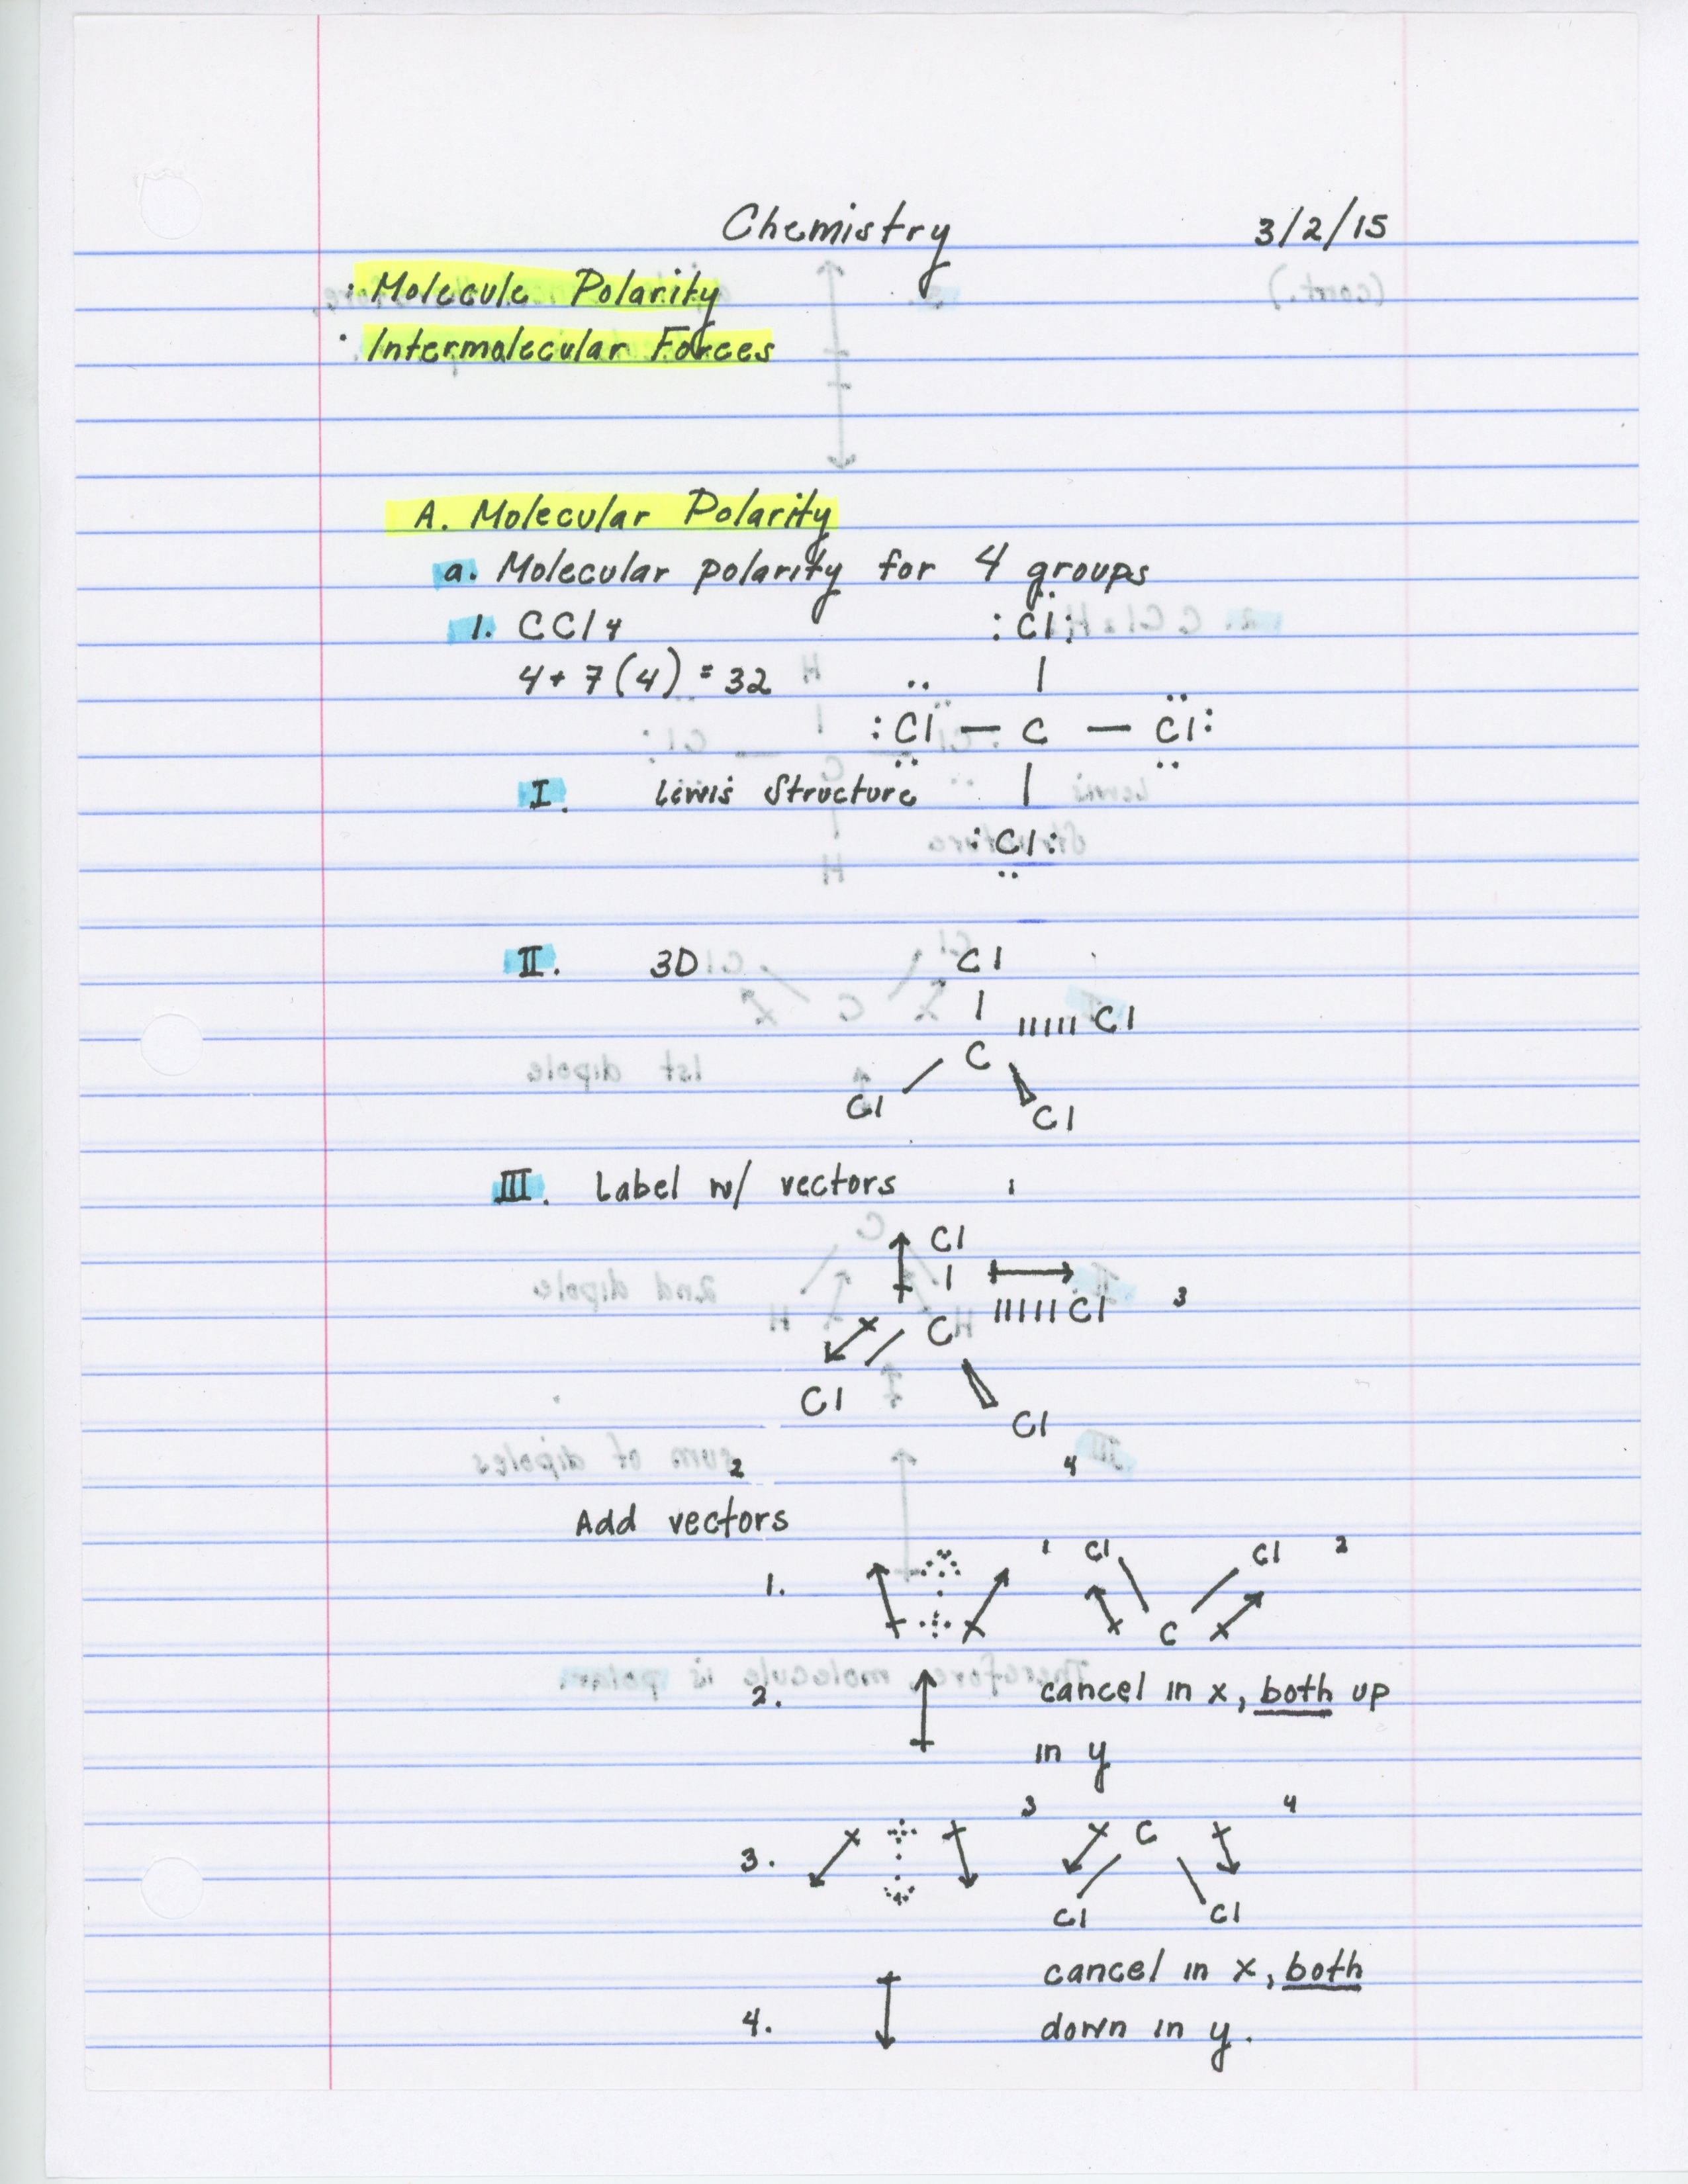 Chemistry 3/2/15
: Molecule Polarity
· Intermolecular Forces
A. Molecular Polarity
a. Molecular polarity for 4 groups
1. CCl4 :Cl:
4 + 7(4) = 32
:Cl — C — Cl:
I. Lewis Structure
:Cl:
II. 3D Cl
Cl
C
Cl Cl
III. Label w/ vectors 1
Cl
Cl 3
C
Cl Cl
2 4
Add vectors
1. 1 Cl Cl 2
C
2. cancel in x, both up
in y
3 4
3. C
Cl Cl
cancel in x, both
4. down in y.